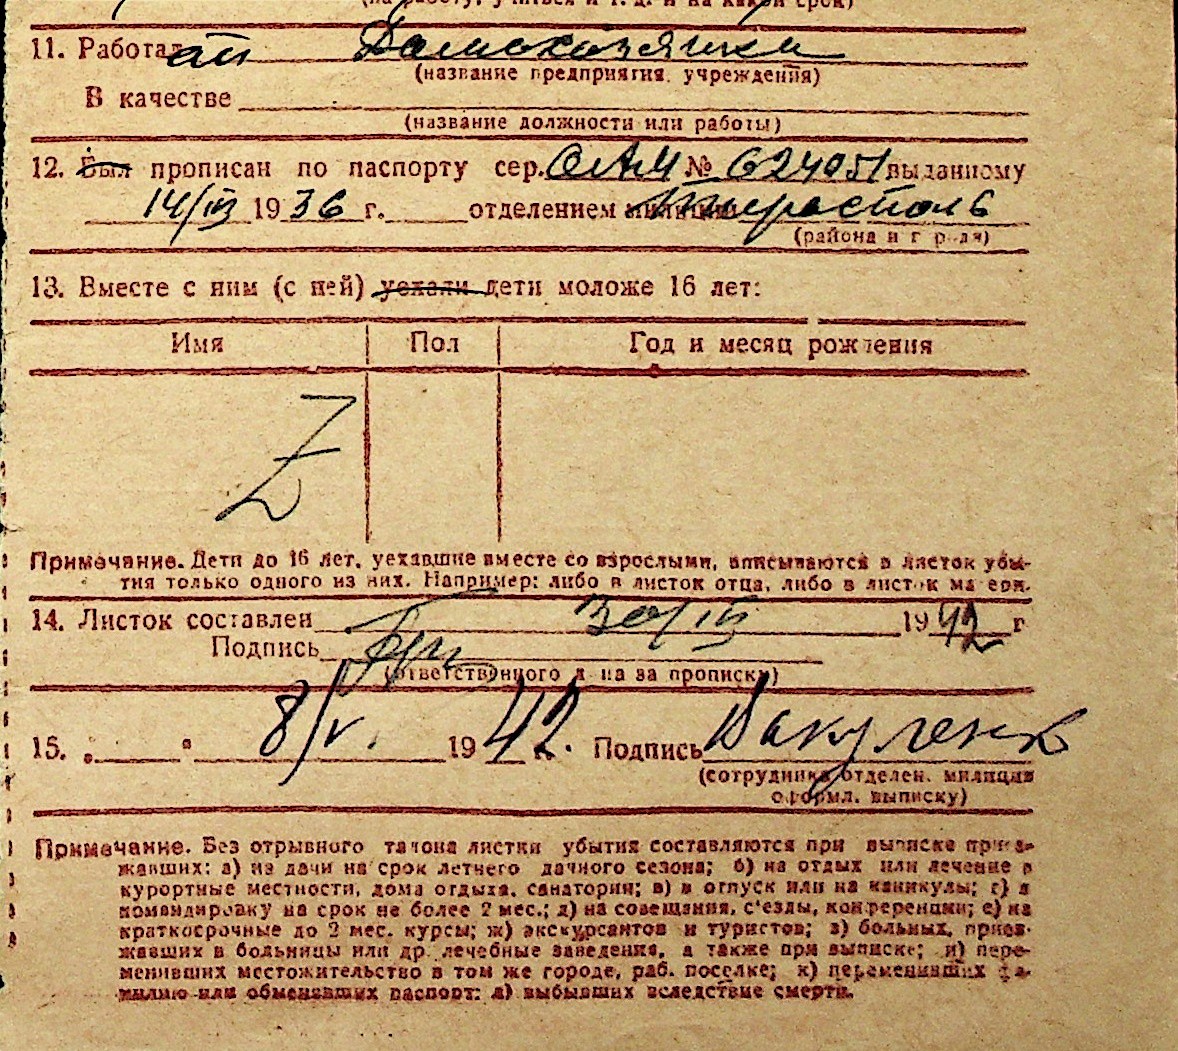 (на работу, учиться и т. д. и на какой срок)
11. Работал ая Домохозяйки
(название предприятия, учреждения)
В качестве
(название должности или работы)
12. Был прописан по паспорту сер. № 624051 выданному
14/III 1936 г. отделением Тирасполь
(района и города)
13. Вместе с ним (с ней) уехали дети моложе 16 лет:
Имя Пол Год и месяц рождения
Z
Примечание. Дети до 16 лет, уехавшие вместе со взрослыми, вписываются в листок убы-
тия только одного из них. Например: либо в листок отца, либо в листок матери.
14. Листок составлен 30/III 1942 г
Подпись
(ответственного л-ца за прописку)
15. „ " 8/V. 1942. Подпись Вакуленко
(сотрудника отделен. милиции
оформл. выписку)
Примечание. Без отрывного талона листки убытия составляются при выписке приез-
жавших: а) из дачи на срок летнего дачного сезона; б) на отдых или лечение в
курортные местности, дома отдыха, санатории; в) в отпуск или на каникулы; г) в
командировку на срок не более 2 мес.; д) на совещания, с'езды, конференции; е) на
краткосрочные до 2 мес. курсы; ж) экскурсантов и туристов; з) больных, приез-
жавших в больницы или др. лечебные заведения, а также при выписке; и) пере-
менивших местожительство в том же городе, раб. поселке; к) переменивших фа-
милию или обменявших паспорт; л) выбывших вследствие смерти.